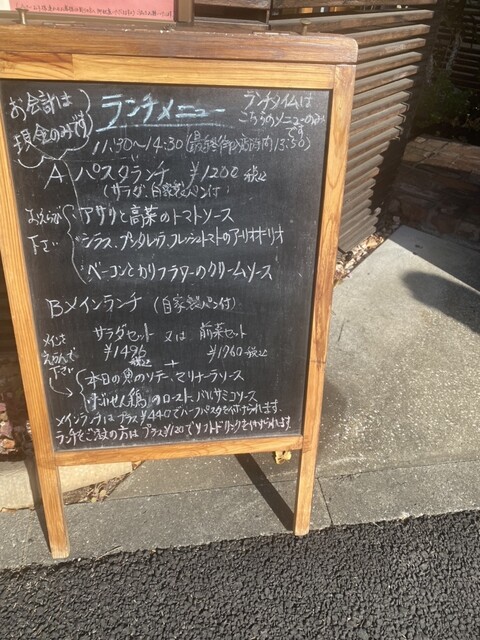 お会計は
現金のみです
ランチメニュー
ランチタイムは
こちらのメニューのみ
です
11:30~14:30(最終御入店時間13:50)
A パスタランチ ¥1200 税込
(サラダ、自家製パン付)
お次から
下さい
アサリと高菜のトマトソース
シラス、ブロッコレッテ、フレッシュトマトのアーリオオーリオ
ベーコンとカリフラワーのクリームソース
Bメインランチ (自家製パン付)
サラダセット 又は 前菜セット
¥1496 税込 ¥1960 税込
+
メインを
えらんで
下さい
本日の魚のソテー、マリナーラソース
だいせん鶏のロースト、バルサミコソース
メインランチはプラス¥440でハーフパスタを付けられます。
ランチをご注文の方はプラス¥120でソフトドリンクを付けられます